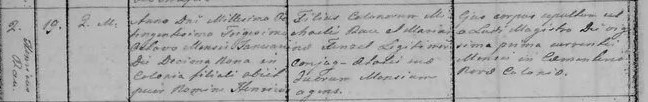 2. 19. 2. M.
Anno Dni Millesimo Oc
tingentesimo Trigesimo
Octavo Mensis Januarii
Die Decima Nona in
Colonia filiali obiit
puer Nomine Henricus
Filius Colonorum Mi
chaelis Rau et Maria
Legitimorum
Conjug. Aetatis suae
Duorum Mensium
agens.
Ejus corpus sepultum est
a Ludi Magistro Die vige
sima prima currentis
Mensis in Cementerio
Novo Coloniae.